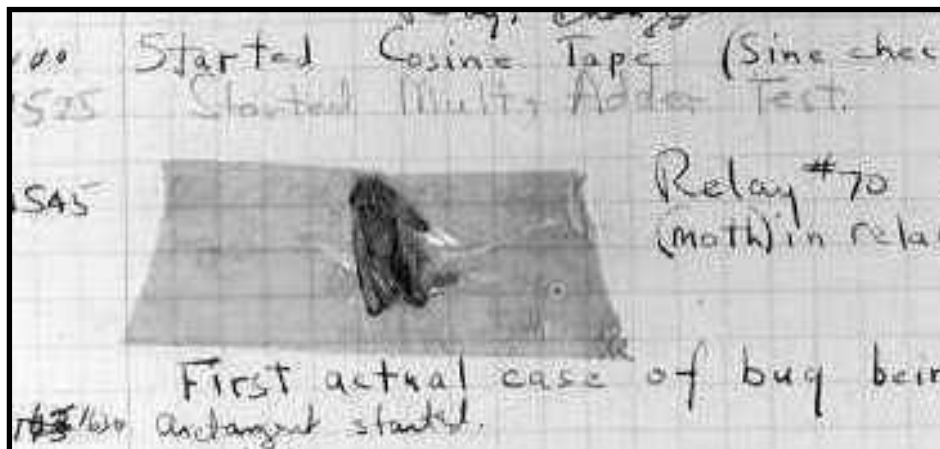 Started Cosine Tape (Sine chec
1525 Started Mult+ Adder Test.
1545 Relay #70
(moth) in relay
First actual case of bug bein
1630 arctangent started.